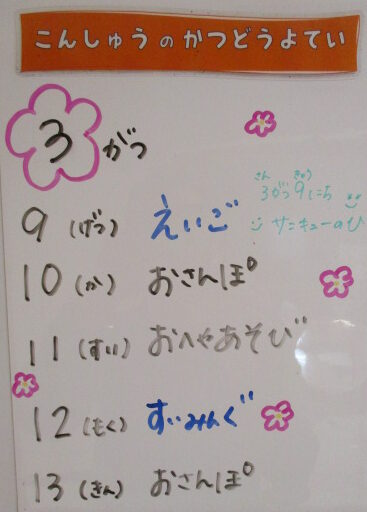 こんしゅうのかつどうよてい
3がつ
さん きゅう
3がつ9にち
サンキューのひ
9(げつ) えいご
10(か) おさんぽ
11(すい) おへやあそび
12(もく) すいみんぐ
13(きん) おさんぽ